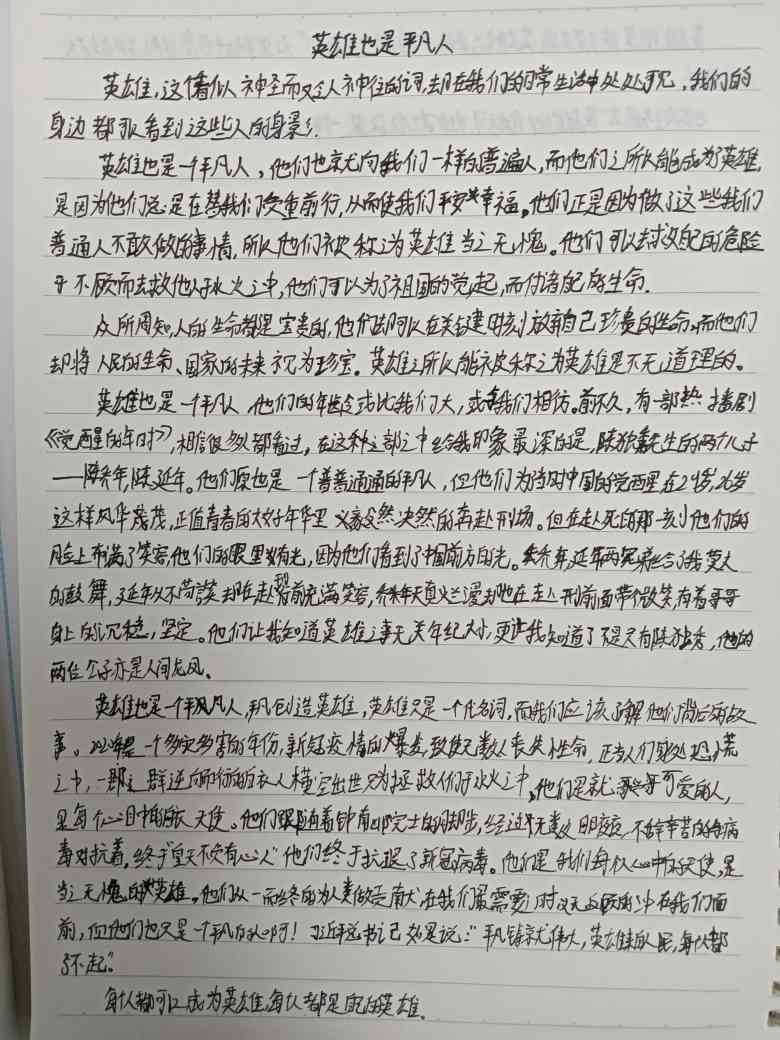 英雄也是平凡人
英雄,这个看似神圣而又令人神往的词,却在我们的日常生活中处处可见,我们的
身边都可以看到这些人的身影。
英雄也是一个平凡人,他们也就向我们一样的普遍人,而他们之所以能成为英雄,
是因为他们总是在替我们负重前行,从而使我们平安幸福。他们正是因为做了这些我们
普通人不敢做的事情,所以他们被称之为英雄当之无愧。他们可以去求自己的危险
于不顾而去救他人于水火之中,他们可以为了祖国的觉起,而付诸自己的生命.
众所周知,人的生命都是宝贵的,他们却可以在关键时刻放弃自己珍贵的生命,而他们
却将人民的生命、国家的未来视为珍宝。英雄之所以能被称之为英雄是不无道理的。
英雄也是一个平凡人,他们的年龄或比我们大,或与我们相仿。前不久,有一部热播剧
《觉醒的年时》,相信很多人都看过,在这种之部之中给我印象最深的是,陈独秀先生的两个儿子
——陈乔年,陈延年。他们原也是一个普普通通的平凡人,但他们为当时中国的觉醒在24岁,26岁
这样风华茂茂,正值青春的大好年华里 义毅然决然的奔赴刑场。但在赴死的那一刻他们的
脸上布满了笑容,他们的眼里有光,因为他们看到了中国前方的光。乔年,延年两兄弟给了我莫大
的鼓舞,延年从不苟谈却在赴刑前充满笑容,乔年天真烂漫却也在走上刑前面带微笑,有着哥哥
身上的沉稳,坚定。他们让我知道英雄之事无关年纪大小,更让我知道了不是只有陈独秀,他的
两位公子亦是人间龙凤。
英雄也是一个平凡人,平凡创造英雄,英雄只是一个代名词,而我们应该了解他们背后的故
事。2020年是一个多灾多害的年份,新冠疫情的爆发,致使无数人丧失性命,正当人们身处恐慌
之中,一群之群逆行所行的白衣人横空出世只为拯救人们于水火之中,他们是就是可爱的人,
是每个人心目中的白衣天使。他们跟随着钟南山院士的脚步,经过无数个日日夜夜,不辞辛苦的与病
毒对抗着,终于"皇天不负有心人"他们终于抗限了新冠病毒。他们是我们每个人心中的天使,是
当之无愧的英雄。他们从一而终的为人类做贡献,在我们最需要时义无反顾的冲在我们面
前,但他们也只是一个平凡的人啊!习近平总书记如是说:"平凡铸就伟大,英雄来自人民,每个人都
了不起"。
每个人都可以成为英雄,每个人都是自己的英雄.